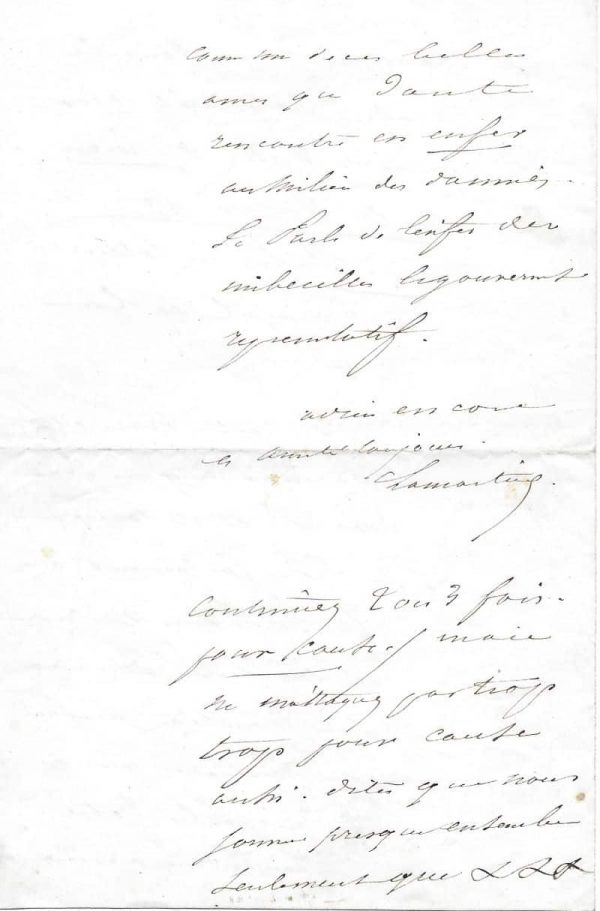 comme un de ces belles
ames que Dante
rencontre en enfer
au milieu des damnés.
Je Parle de l'enfer des
imbecilles le gouvernt
representatif.
adieu encore
et amitié toujours.
Lamartine.
Continuez 2 ou 3 fois.
pour cause. / mais
ne m'attaquez pas trop
trop pour cause
aussi. dites que nous
sommes presque ensemble
seulement que x x x